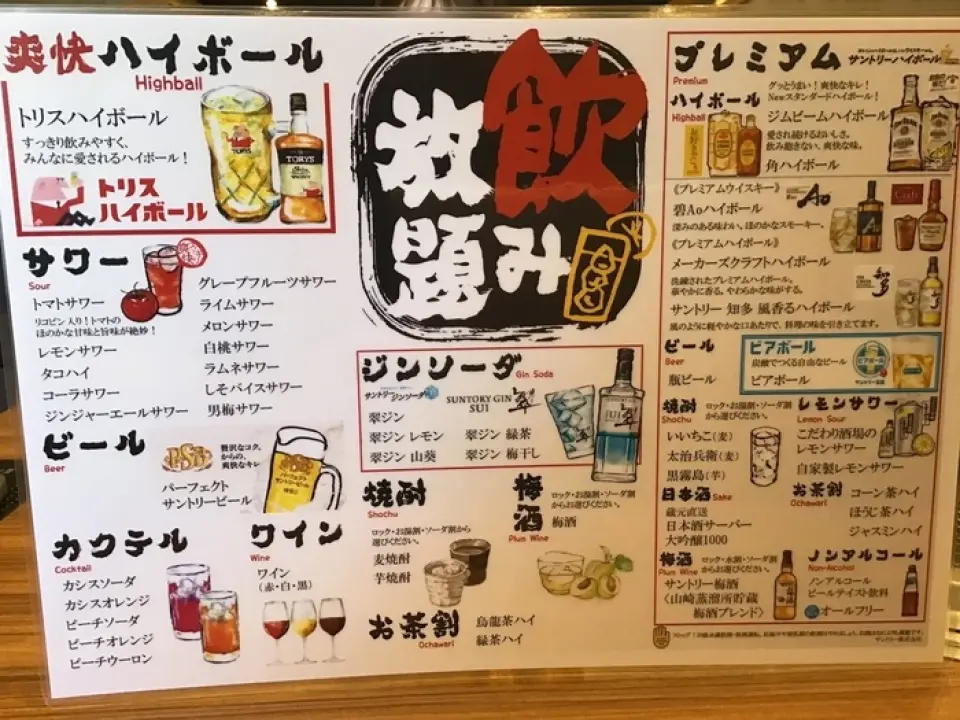 爽快ハイボール
Highball
トリスハイボール
すっきり飲みやすく、
みんなに愛されるハイボール！
トリス
ハイボール
TORYS
サワー
Sour
トマトサワー
リコピン入り！トマトの
ほのかな甘味と旨味が絶妙！
レモンサワー
タコハイ
コーラサワー
ジンジャーエールサワー
グレープフルーツサワー
ライムサワー
メロンサワー
白桃サワー
ラムネサワー
しそパイスサワー
男梅サワー
ビール
Beer
贅沢なコク、
からの、
爽快なキレ
パーフェクト
サントリービール
カクテル
Cocktail
カシスソーダ
カシスオレンジ
ピーチソーダ
ピーチオレンジ
ピーチウーロン
ワイン
Wine
ワイン
（赤・白・黒）
飲み放題
ジンソーダ
Gin Soda
サントリージンソーダ
SUNTORY GIN
SUI
翠
翠ジン
翠ジン レモン
翠ジン 緑茶
翠ジン 山葵
翠ジン 梅干し
焼酎
Shochu
ロック・お湯割・ソーダ割から
選びください。
麦焼酎
芋焼酎
梅酒
Plum Wine
ロック・お湯割・ソーダ割
からお選びください。
梅酒
お茶割
Ochawari
烏龍茶ハイ
緑茶ハイ
プレミアム
Premium
サントリーハイボール
ハイボール
Highball
グッとうまい！爽快なキレ！
Newスタンダードハイボール！
ジムビームハイボール
愛され続けるおいしさ。
飲み飽きない、爽快な味。
角ハイボール
《プレミアムウイスキー》
碧Aoハイボール
深みのある味わい、ほのかなスモーキー。
Ao
《プレミアムハイボール》
メーカーズクラフトハイボール
洗練されたプレミアムハイボール。
華やかに香る。やわらかな味がする。
サントリー 知多 風香るハイボール
風のように軽やかな口あたりで、料理の味を引き立てます。
知多
ビール
Beer
瓶ビール
ビアボール
炭酸でつくる自由なビール
ビアボール
焼酎
Shochu
ロック・お湯割・ソーダ割
から選びください。
いいちこ（麦）
太治兵衛（麦）
黒霧島（芋）
レモンサワー
Lemon Sour
こだわり酒場の
レモンサワー
自家製レモンサワー
日本酒 Sake
蔵元直送
日本酒サーバー
大吟醸1000
お茶割
Ochawari
コーン茶ハイ
ほうじ茶ハイ
ジャスミンハイ
梅酒
Plum Wine
ロック・水割・ソーダ割
からお選びください。
サントリー梅酒
〈山崎蒸溜所貯蔵
梅酒ブレンド〉
ノンアルコール
Non-Alcohol
ノンアルコール
ビールテイスト飲料
オールフリー
サントリー株式会社